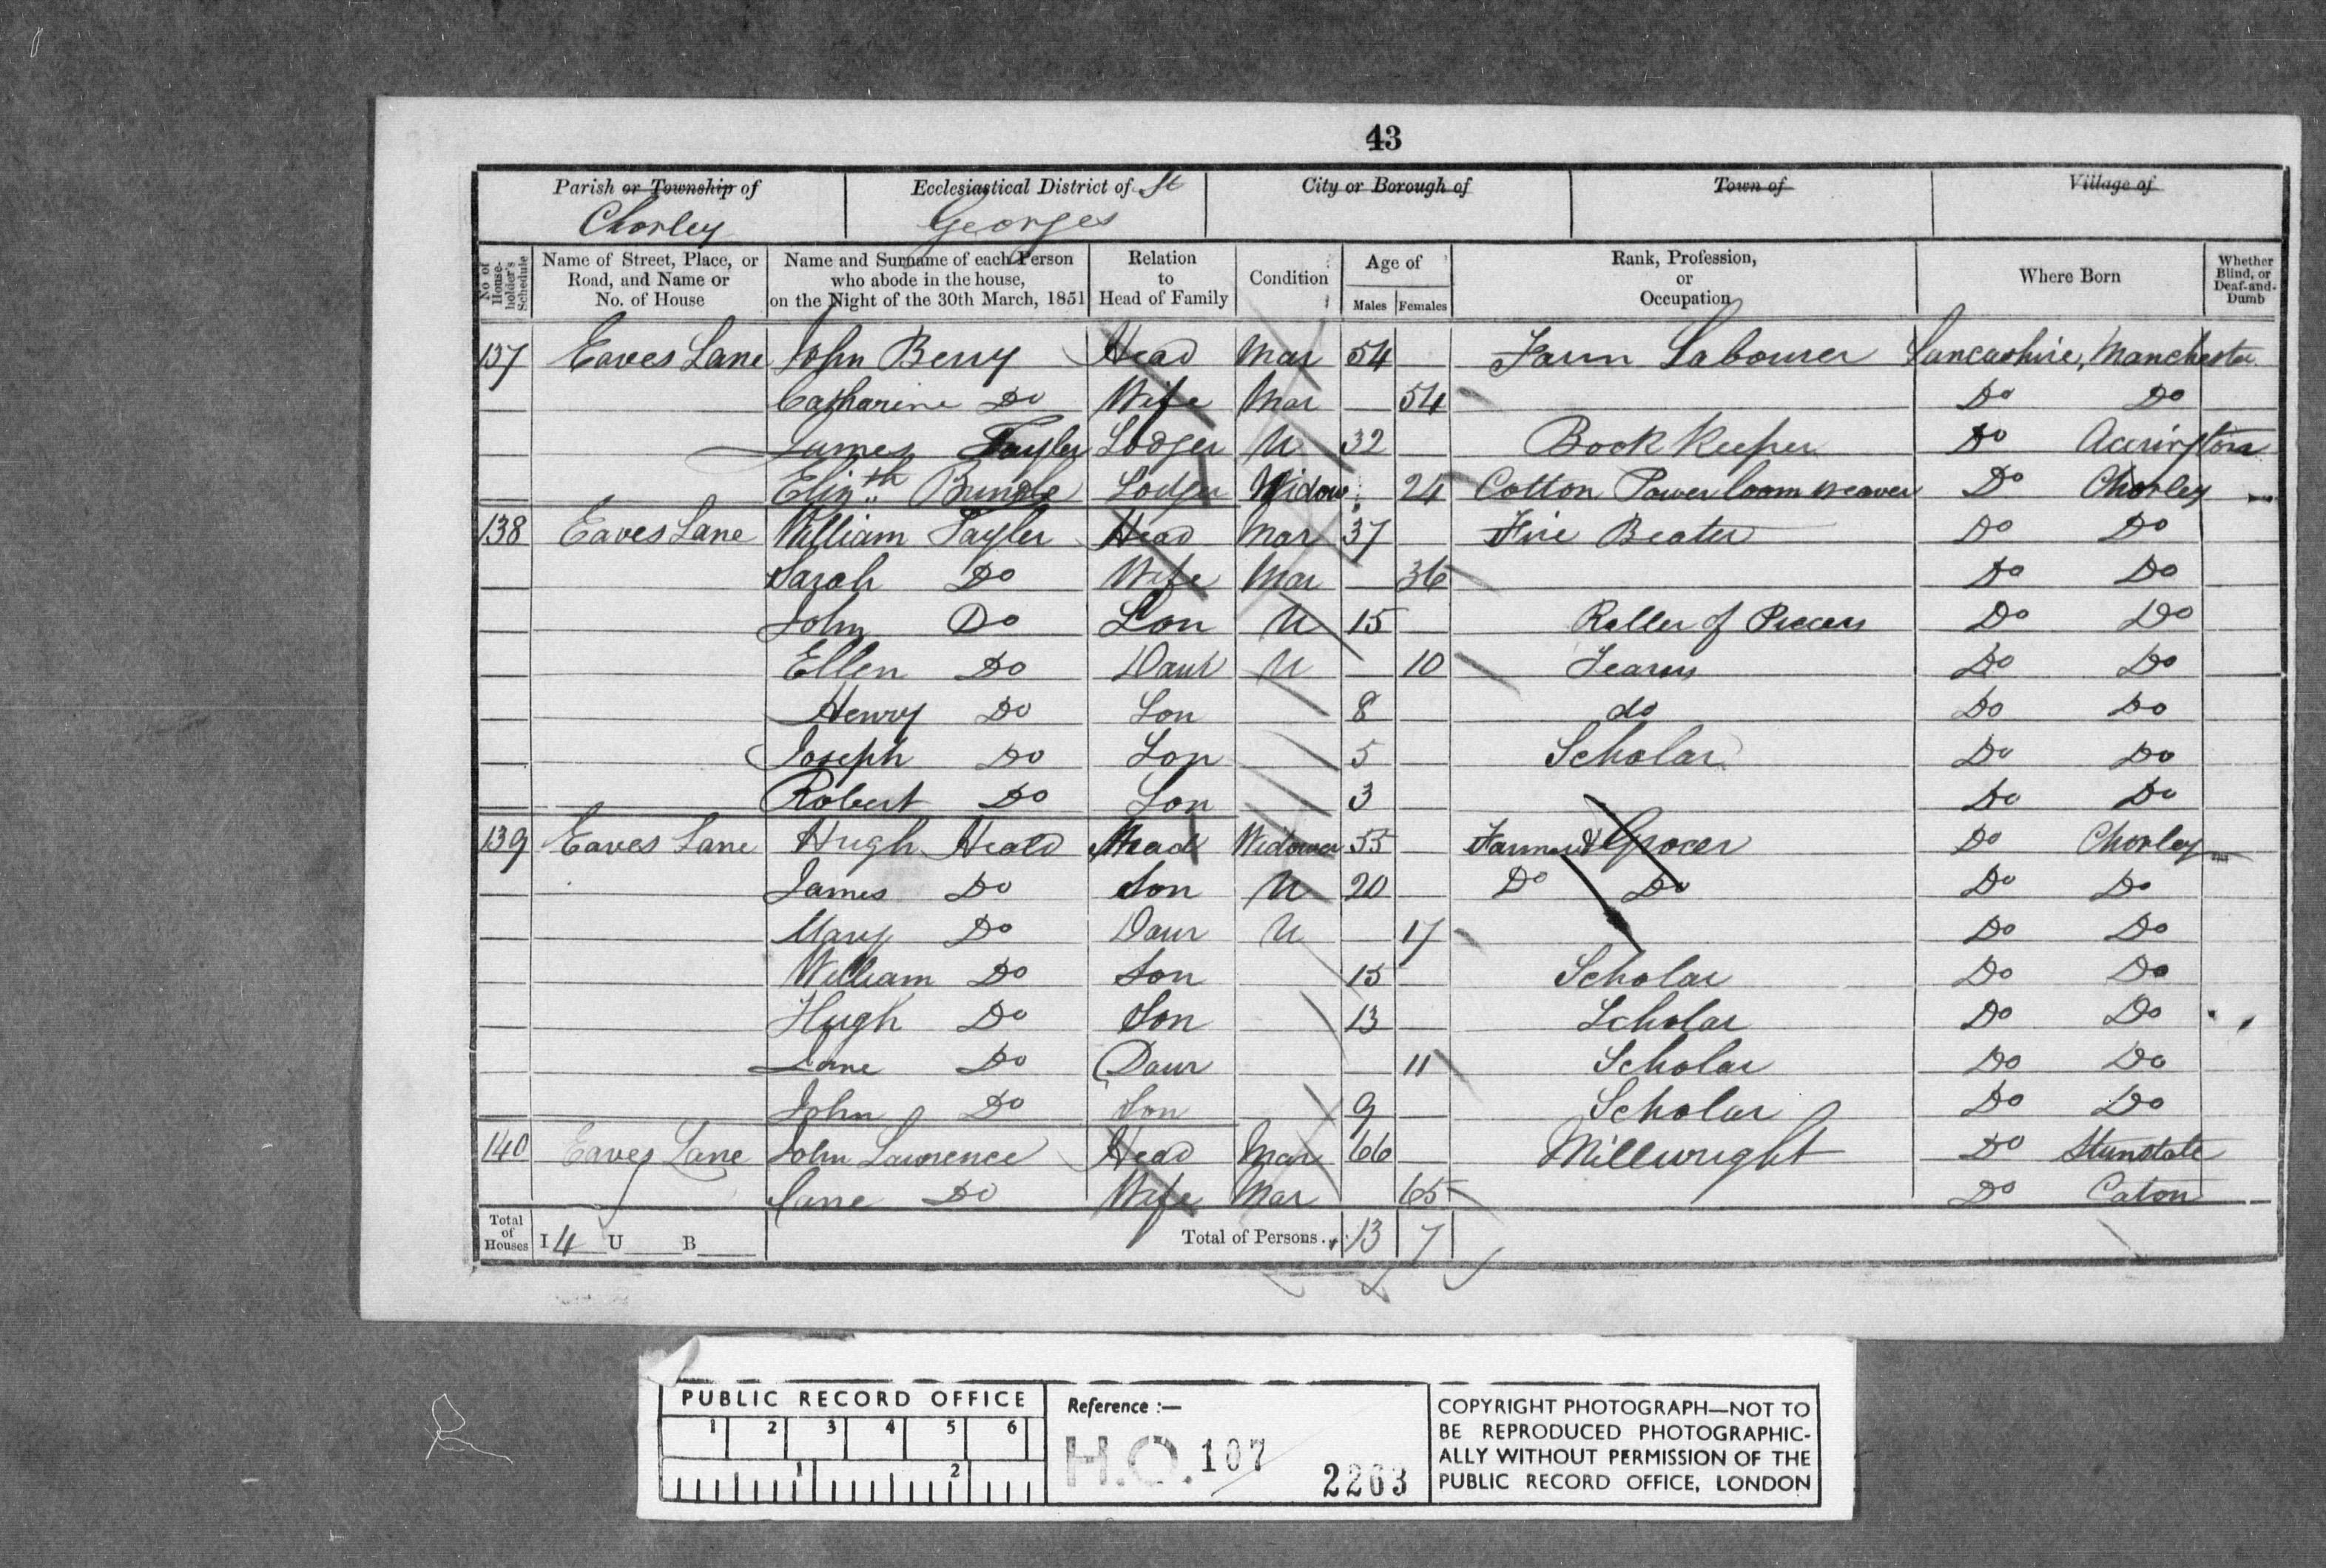 43
Parish or Township of Chorley
Ecclesiastical District of St Georges
City or Borough of
Town of
Village of
No of House-holder's Schedule
Name of Street, Place, or Road, and Name or No. of House
Name and Surname of each Person who abode in the house, on the Night of the 30th March, 1851
Relation to Head of Family
Condition
Age of
Males Females
Rank, Profession, or Occupation
Where Born
Whether Blind, or Deaf-and-Dumb
137 Eaves Lane John Berry Head Mar 54 Farm Labourer Lancashire, Manchester
Catharine Do Wife Mar 54 Do Do
James Tayler Lodger U 32 Book Keeper Do Accrington
Elizth Lodger Widow 24 Cotton Power loom weaver Do Chorley
138 Eaves Lane William Tayler Head Mar 37 Fire Beater Do Do
Sarah Do Wife Mar 36 Do Do
John Do Son U 15 Roller of Pieces Do Do
Ellen Do Daur U 10 Do Do
Henry Do Son 8 do Do Do
Joseph Do Son 5 Scholar Do Do
Robert Do Son 3 Do Do
139 Eaves Lane Hugh Heald Head Widower 55 Farmer & Grocer Do Chorley
James Do Son U 20 Do Do Do Do
Mary Do Daur U 17 Do Do
William Do Son 15 Scholar Do Do
Hugh Do Son 13 Scholar Do Do
Jane Do Daur 11 Scholar Do Do
John Do Son 9 Scholar Do Do
140 Eaves Lane John Lawrence Head Mar 66 Millwright Do
Jane Do Wife Mar 65 Do Caton
Total of Houses I 4 U B Total of Persons 13 7
PUBLIC RECORD OFFICE
1 2 3 4 5 6
1 2
Reference :—
H.O. 107 / 2263
COPYRIGHT PHOTOGRAPH—NOT TO
BE REPRODUCED PHOTOGRAPHIC-
ALLY WITHOUT PERMISSION OF THE
PUBLIC RECORD OFFICE, LONDON